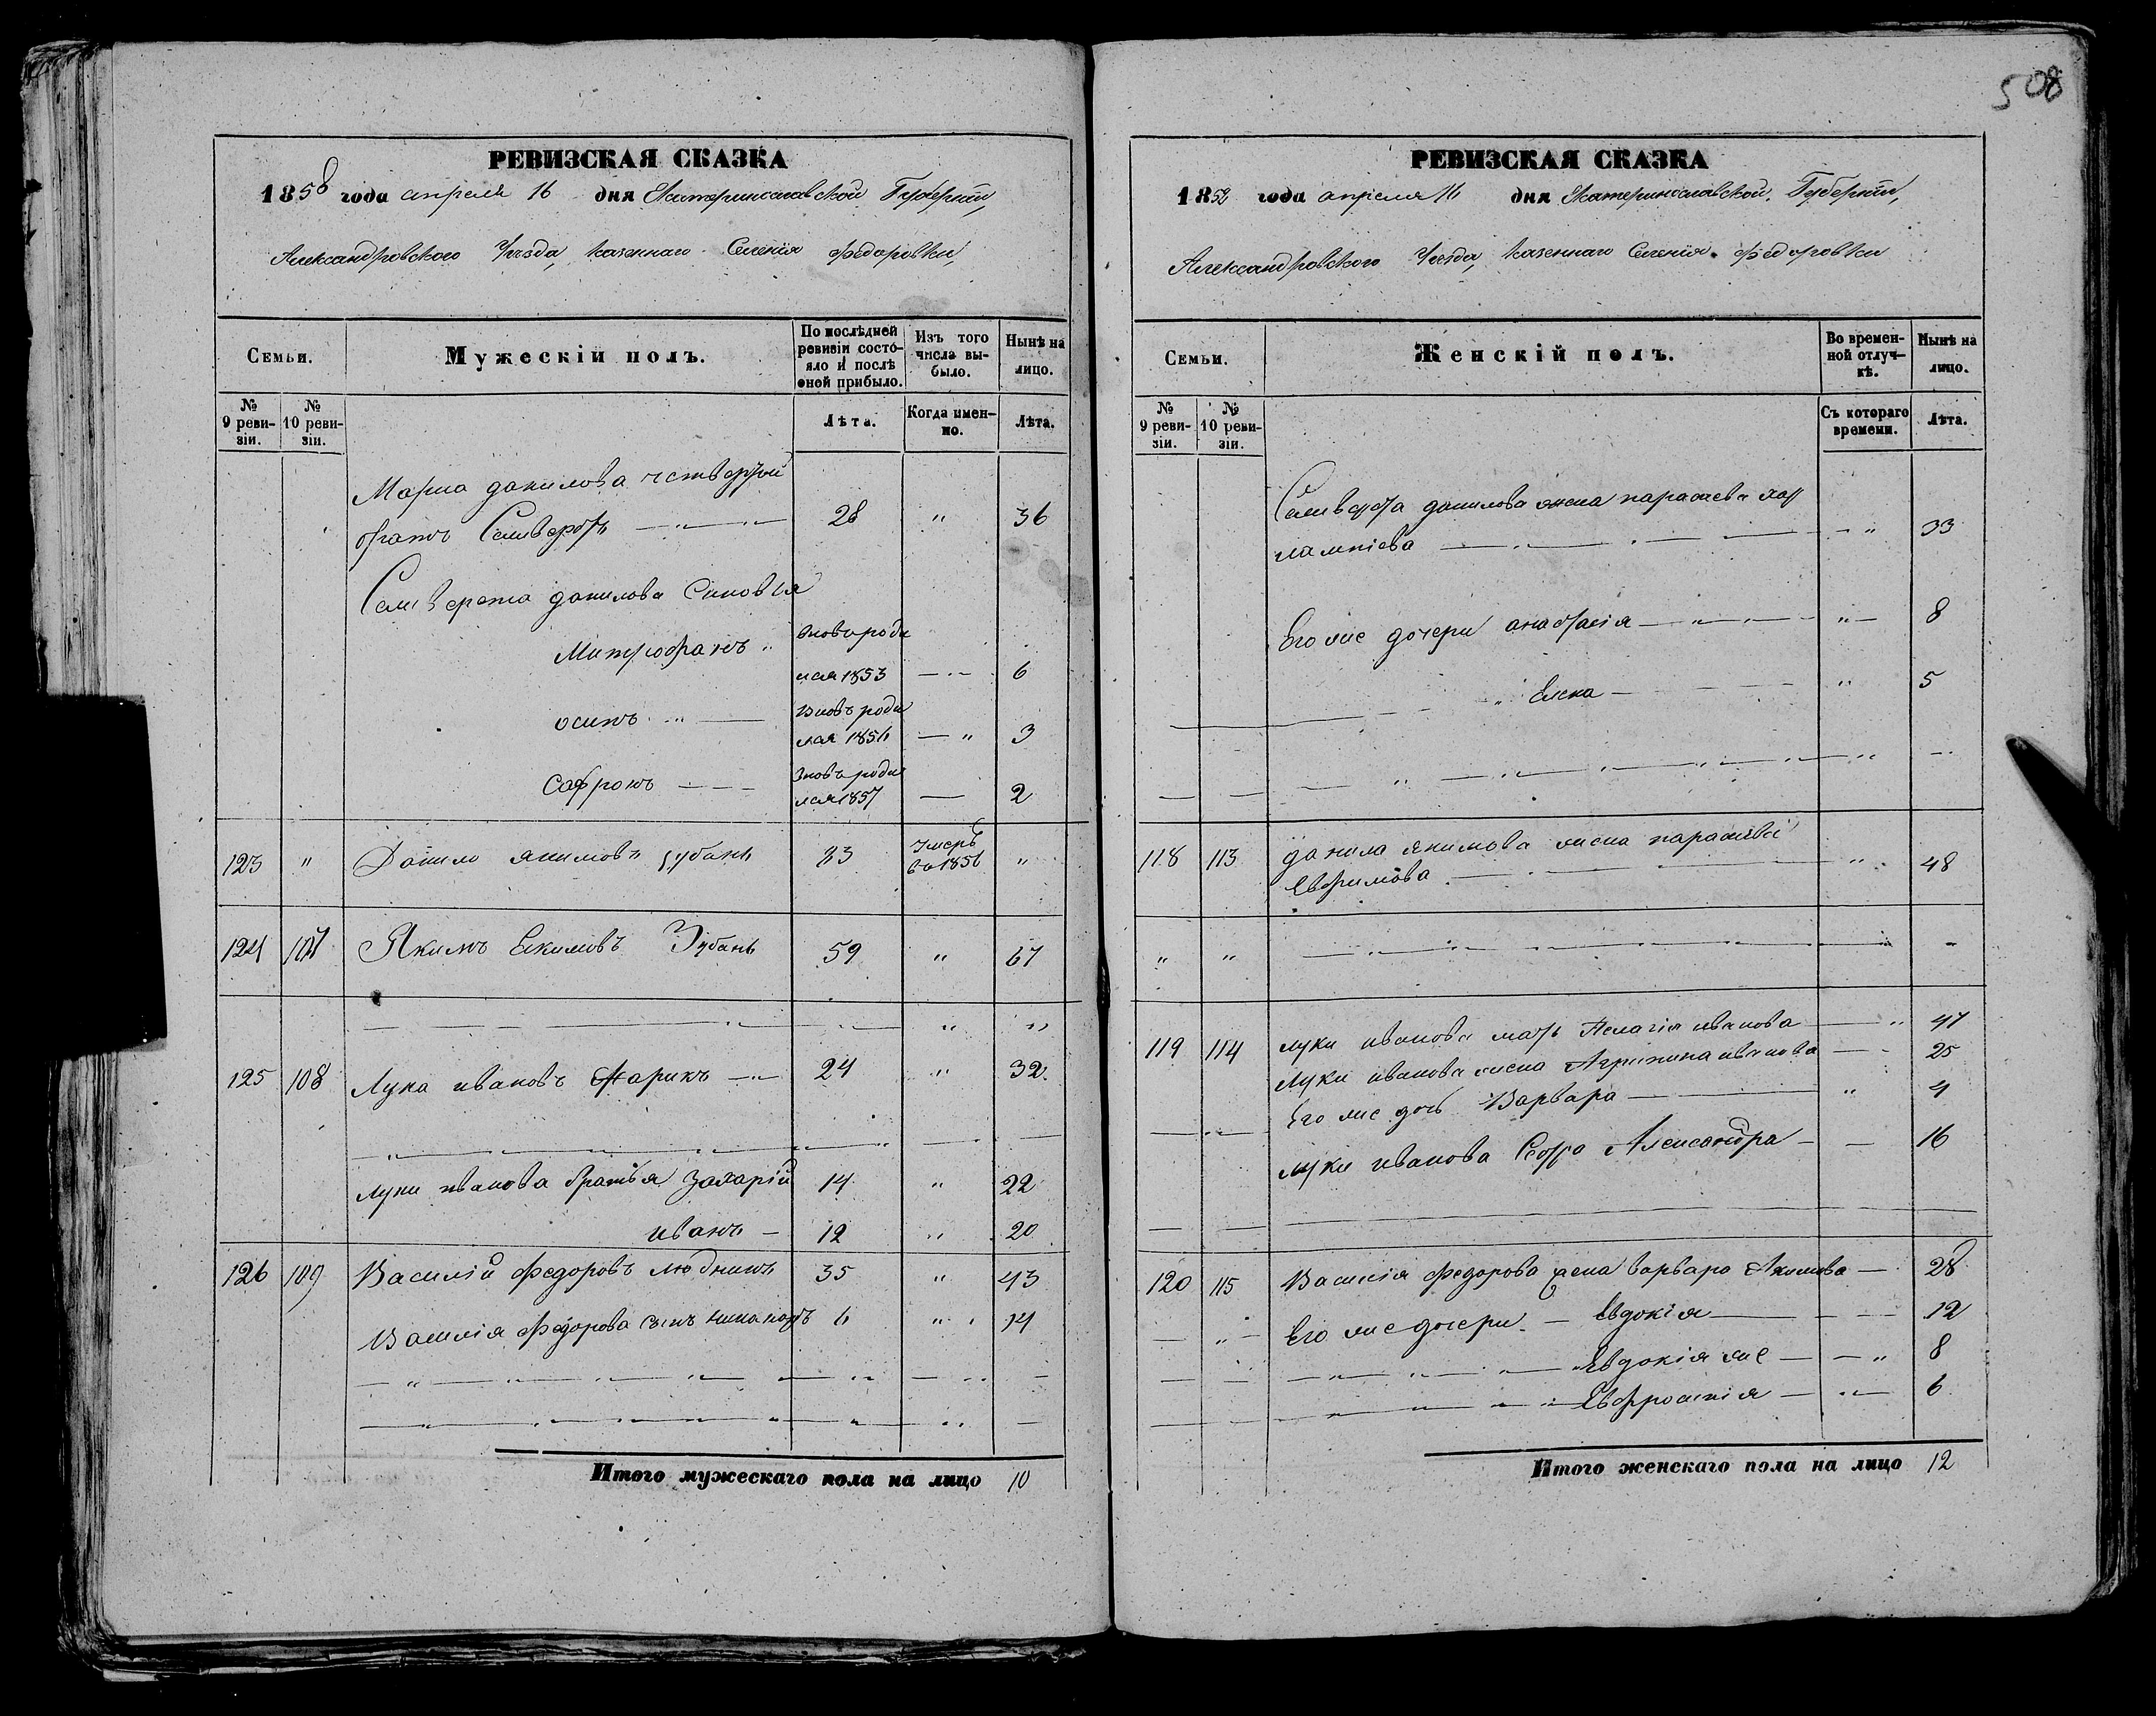 508
РЕВИЗСКАЯ СКАЗКА
1858 года апреля 16 дня Екатеринославской Губерніи,
Александровского Уѣзда, казеннаго Селенія Федоровки,
Семьи.
Мужескій полъ.
По послѣдней ревизіи состояло и послѣ оней прибыло.
Изъ того числа выбыло.
Нынѣ на лицо.
№ 9 ревизіи.
№ 10 ревизіи.
Лѣта.
Когда именно.
Лѣта.
данилова четвертой
братъ Селиверстъ 28 " 36
Селиверста данилова Синовья
Митрофанъ вновь роди
лся 1853 6
осипъ вновь роди
лся 1856 3
Сафронъ вновь роди
лся 1857 2
123 " Данило якимовъ зубань 33 умеръ в 1856 "
124 107 Якимъ Екимовъ Зубань 59 " 67
125 108 Лука ивановъ 24 " 32
Луки иванова братья Захарій 14 " 22
иванъ 12 " 20
126 109 Василій Федоровъ людникъ 35 " 43
Василія Федорова сынъ 6 " 14
Итого мужескаго пола на лицо 10
РЕВИЗСКАЯ СКАЗКА
1858 года апреля 16 дня Екатеринославской Губерніи,
Александровского Уѣзда, казеннаго Селенія Федоровки
Семьи.
Женскій полъ.
Во временной отлучкѣ.
Нынѣ на лицо.
№ 9 ревизіи.
№ 10 ревизіи.
Съ котораго времени.
Лѣта.
Селиверста данилова жена параскева хар
лампіева " 33
Его же дочери анастасія " 8
Елена " 5
118 113 данила якимова жена парасквѣ
Евфимова " 48
" "
119 114 луки иванова мать Пелагія иванова " 47
Луки иванова жена Агрипина иванова 25
Его же дочь Варвара " 4
луки иванова Сестра Александра 16
120 115 Василія Федорова жена варвара Акимова 28
Его же дочери Евдокія 12
Евдокія же " 8
Евфросинія " 6
Итого женскаго пола на лицо 12